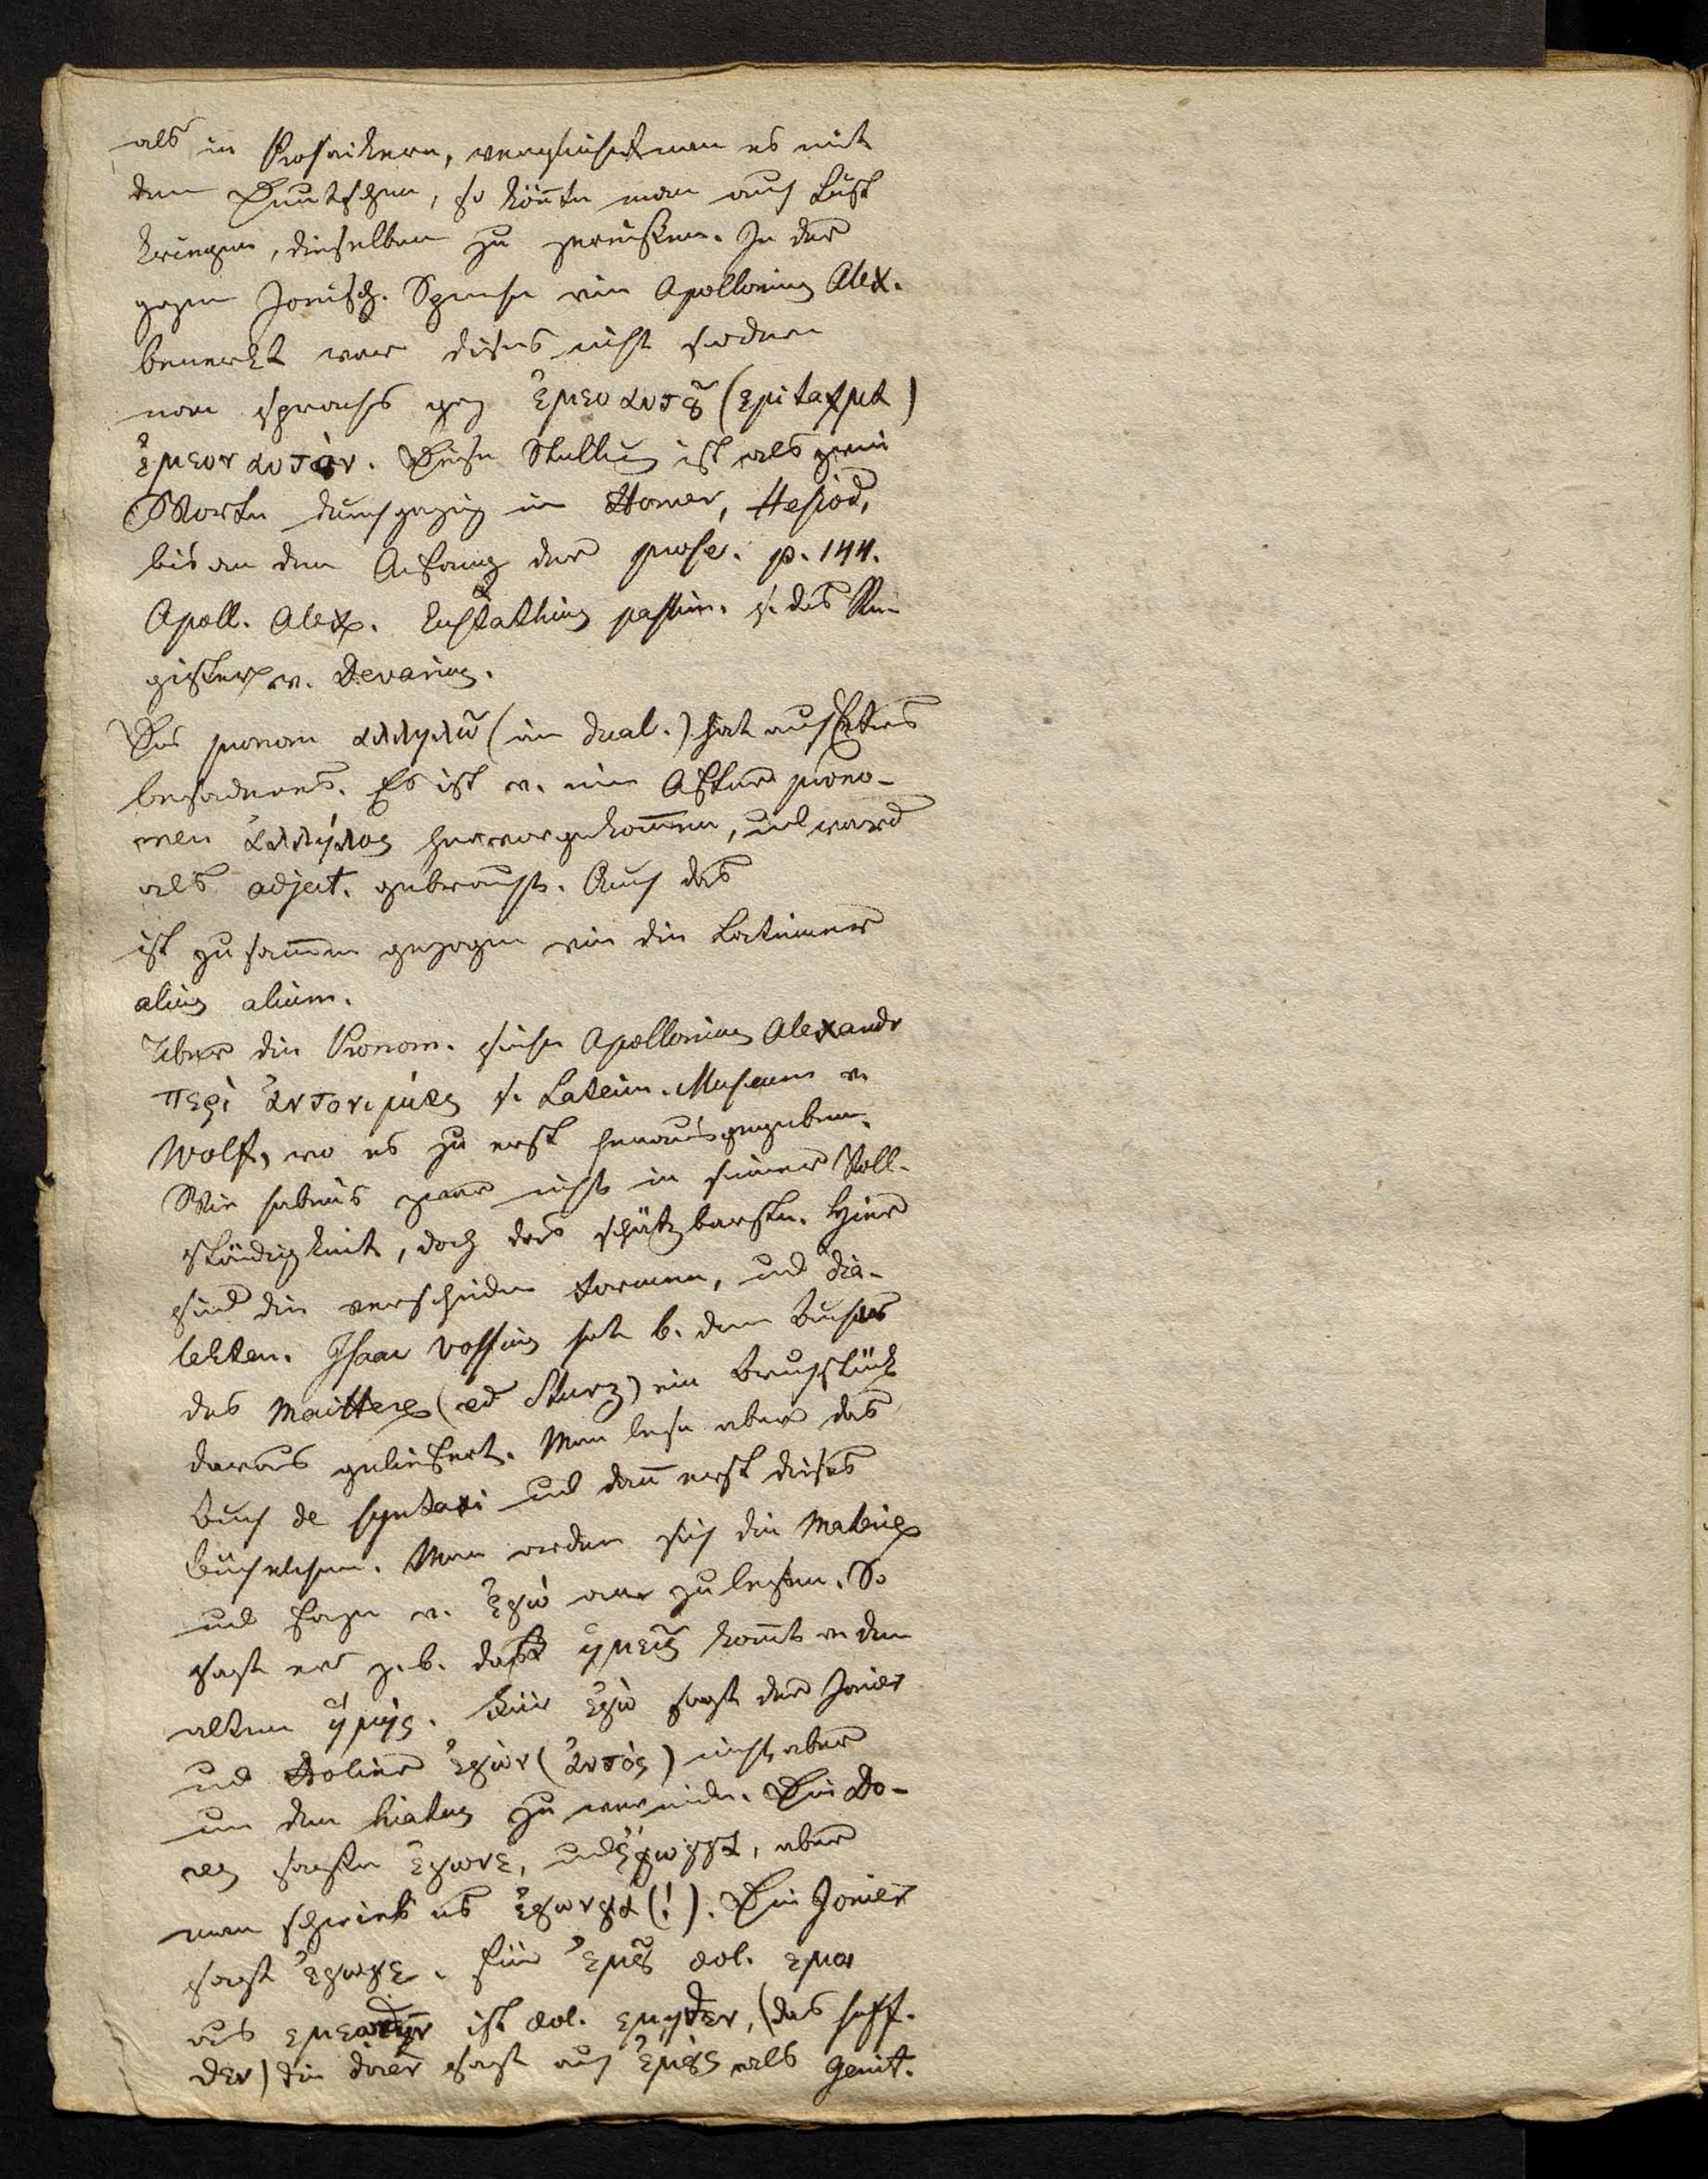 als in Prosaikern, vergleicht man es mit
dem Deutschen, so könnte man auch Lust
kriegen, dieselben zu zerreißen. In der
ganzen Jonisch. Sprache wie Apollonius Alex.
bemerkt war dieses nicht sondern
man sprachs ἐμεο αυτȣ͂ (επιταγμα)
ἐμεον αυτὸν. Diese Stellung ist als zwei
Worte durchgängig in Homer, Hesiod,
bis an den Anfang der prose. p. 144.
Apoll. Alex. Eustathius passim. s. das Re-
gister v. Devarius.
Das pronom αλληλω (im dual.) hat auch etwas
besonderes. Es ist v. einem After prono-
men ἀλλήλος hervorgekom̄en, und ward
als adject. gebraucht. Auch das
ist zusam̄en gezogen wie die Lateiner
alius alium.
Über die Pronom. siehe Apollonius Alexandr
περὶ ἀντονιμίας s. Latein. Museum v.
Wolf, wo es zu erst herausgegeben.
Wir habens zwar nicht in seiner Voll-
ständigkeit, doch das schätzbarste. Hier
sind die verschiedn Formen, und Dia-
lekten. Isaac Vossius hat b. dem Buche
des Maittere (ed Sturz) ein Bruchstück
daraus geliefert. Man lese aber das
Buch de syntaxi und dan̄ erst dieses
Büchelchen. Man ordne sich die Materie
und fange v. ἐγώ an zu lesen. So
sagt er z. b. daß ἡμεῖς kom̄t v. dem
alten ἡμής. Für ἐγὼ sagt der Jonier
und Aeolier ἐγὼν (ἀυτός) nicht aber
um den hiatus zu vermeiden. Die Do-
res sagten ἐγωνε, und ἐγωγγα, aber
man schrieb es ἐγωνγα (!). Die Jonier
sagt ἐγωγε. für ἐμȣ͂ aeol.
aus ist aeol. εμηθεν, (das suff.
θεν) die dorer sagt auch ἐμȣ͂ς als Genit.